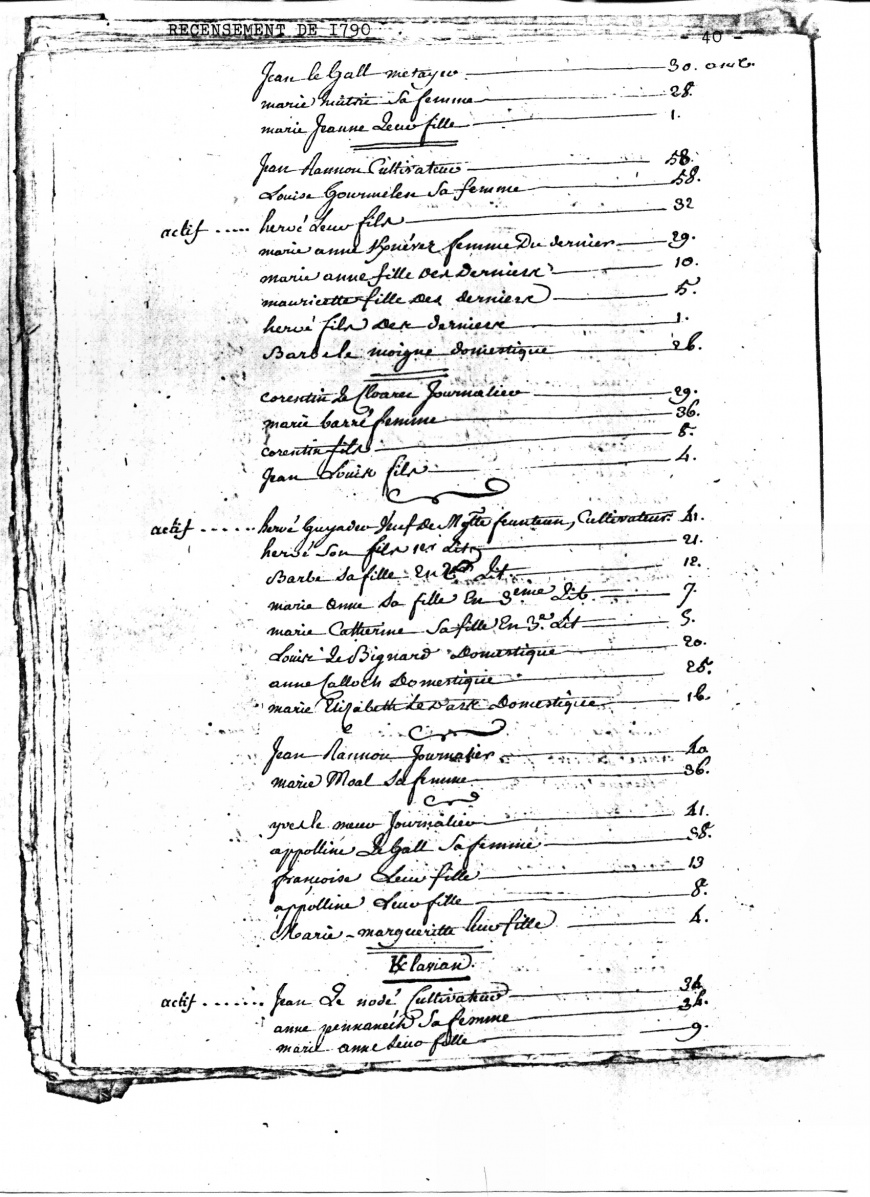 RECENSEMENT DE 1790 - 40 -
Jean le Gall metayer 30. ans
marie sa femme 28.
marie Jeanne Leur fille 1.
Jean Rannou Cultivateur 58.
Louise Gourmelen Sa femme 58.
actif ..... hervé Leur fils 32
marie anne femme Du dernier 29.
marie anne fille Des Derniers 10.
mauricette fille Des derniers 5.
hervé fils Des derniers 1.
Barbe le moigne domestique 26.
corentin Le Cloarec Journalier 29.
marie barré femme 36.
corentin fils 8.
Jean Louis fils 4.
actif ...... hervé Guyader Veuf de Mgtte feunteun, Cultivateur. 41.
hervé Son fils 1er Lit 21.
Barbe sa fille En Lit 12.
marie anne Sa fille En 3eme Lit 7.
marie Catherine Sa fille En 3e. Lit 5.
Louise Le Bignard Domestique 20.
anne Calloch Domestique 25.
marie Elizabeth Domestique 16.
Jean Rannou Journalier 40
marie Moal Sa femme 36.
yves le meur Journalier 41.
appolline Le Gall Sa femme 38.
françoise Leur fille 13
appolline Leur fille 8.
Marie-margueritte leur fille 4.
actif ....... Jean Le nodé Cultivateur 34
anne pennanech Sa femme 34.
marie anne Leur fille 9.